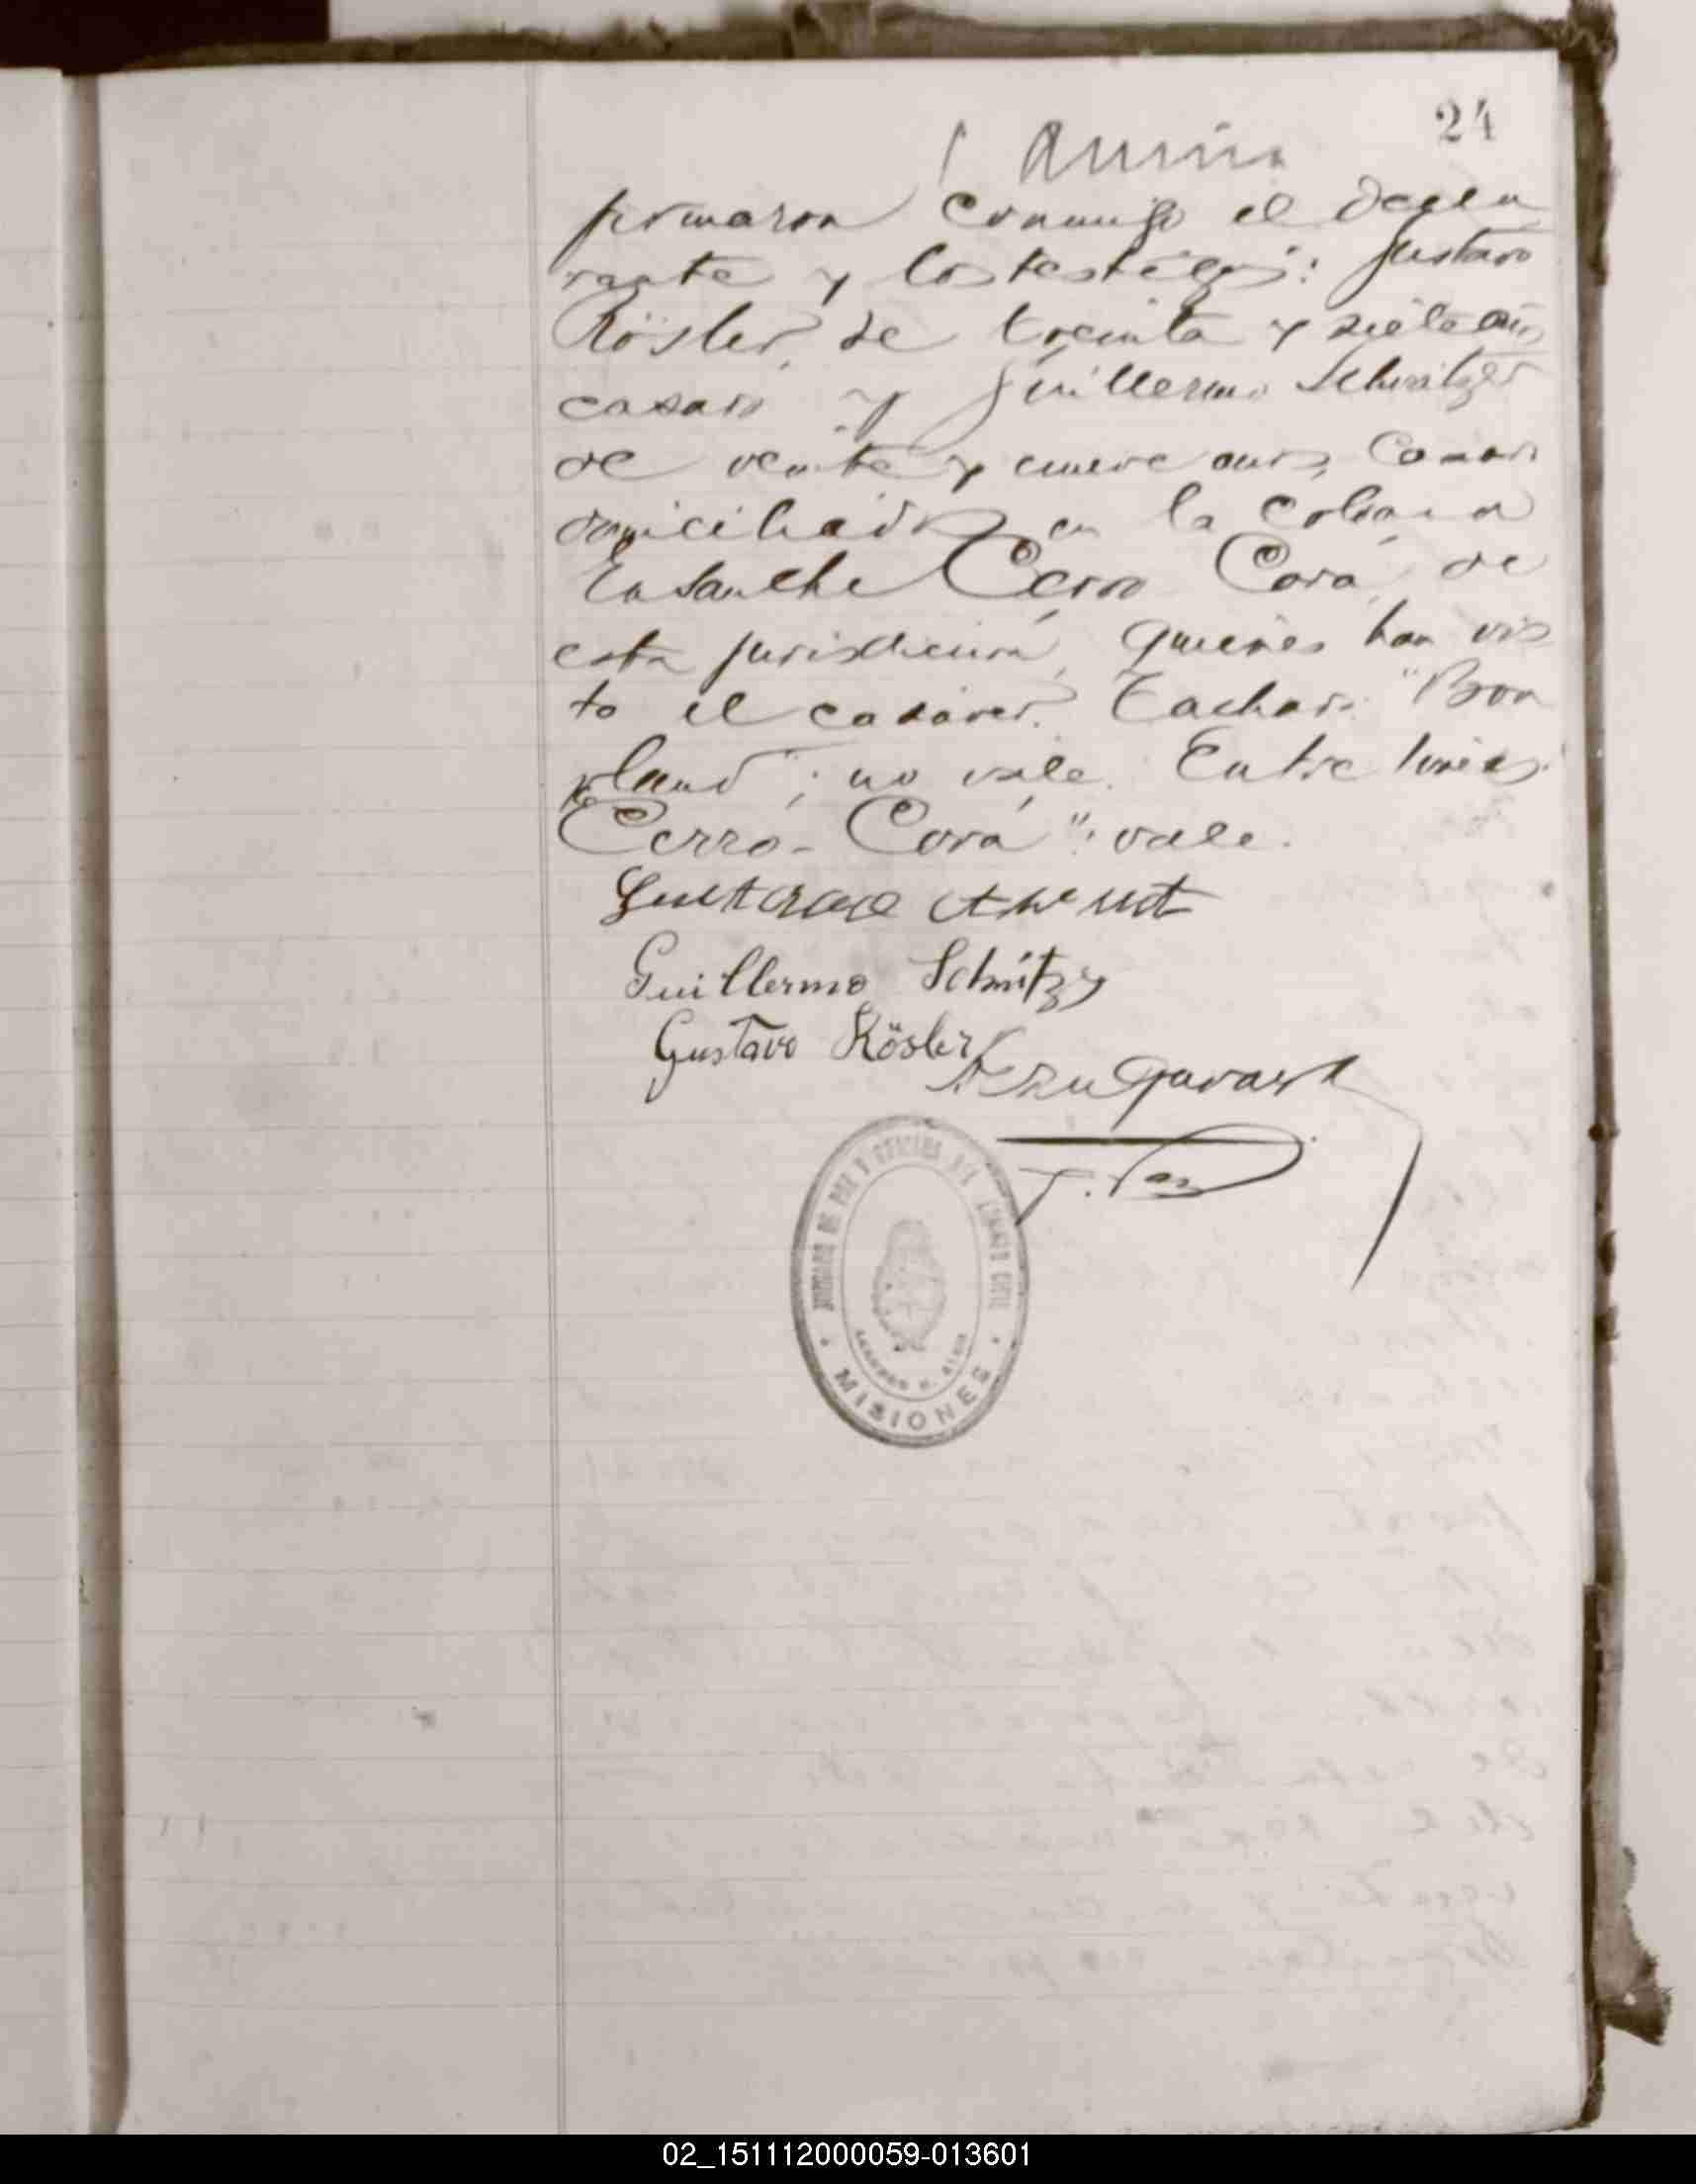 24
firmaron conmigo el decla
rante y los testigos: Gustavo
Rösler, de treinta y siete años
casado y Guillermo Schnitzer
de veinte y nueve años, casado
domiciliados en la Colonia
Ensanche Cerro Corá, de
esta jurisdicción, quienes han vis
to el cadáver. Tachado: "Bon
pland"; no vale. Entre lineas:
Cerro-Corá": vale.
Guillermo Schnitzer
Gustavo Rösler
JUZGADO DE PAZ Y OFICINA DEL REGISTRO CIVIL
LEANDRO N. ALEM
MISIONES
02_151112000059-013601